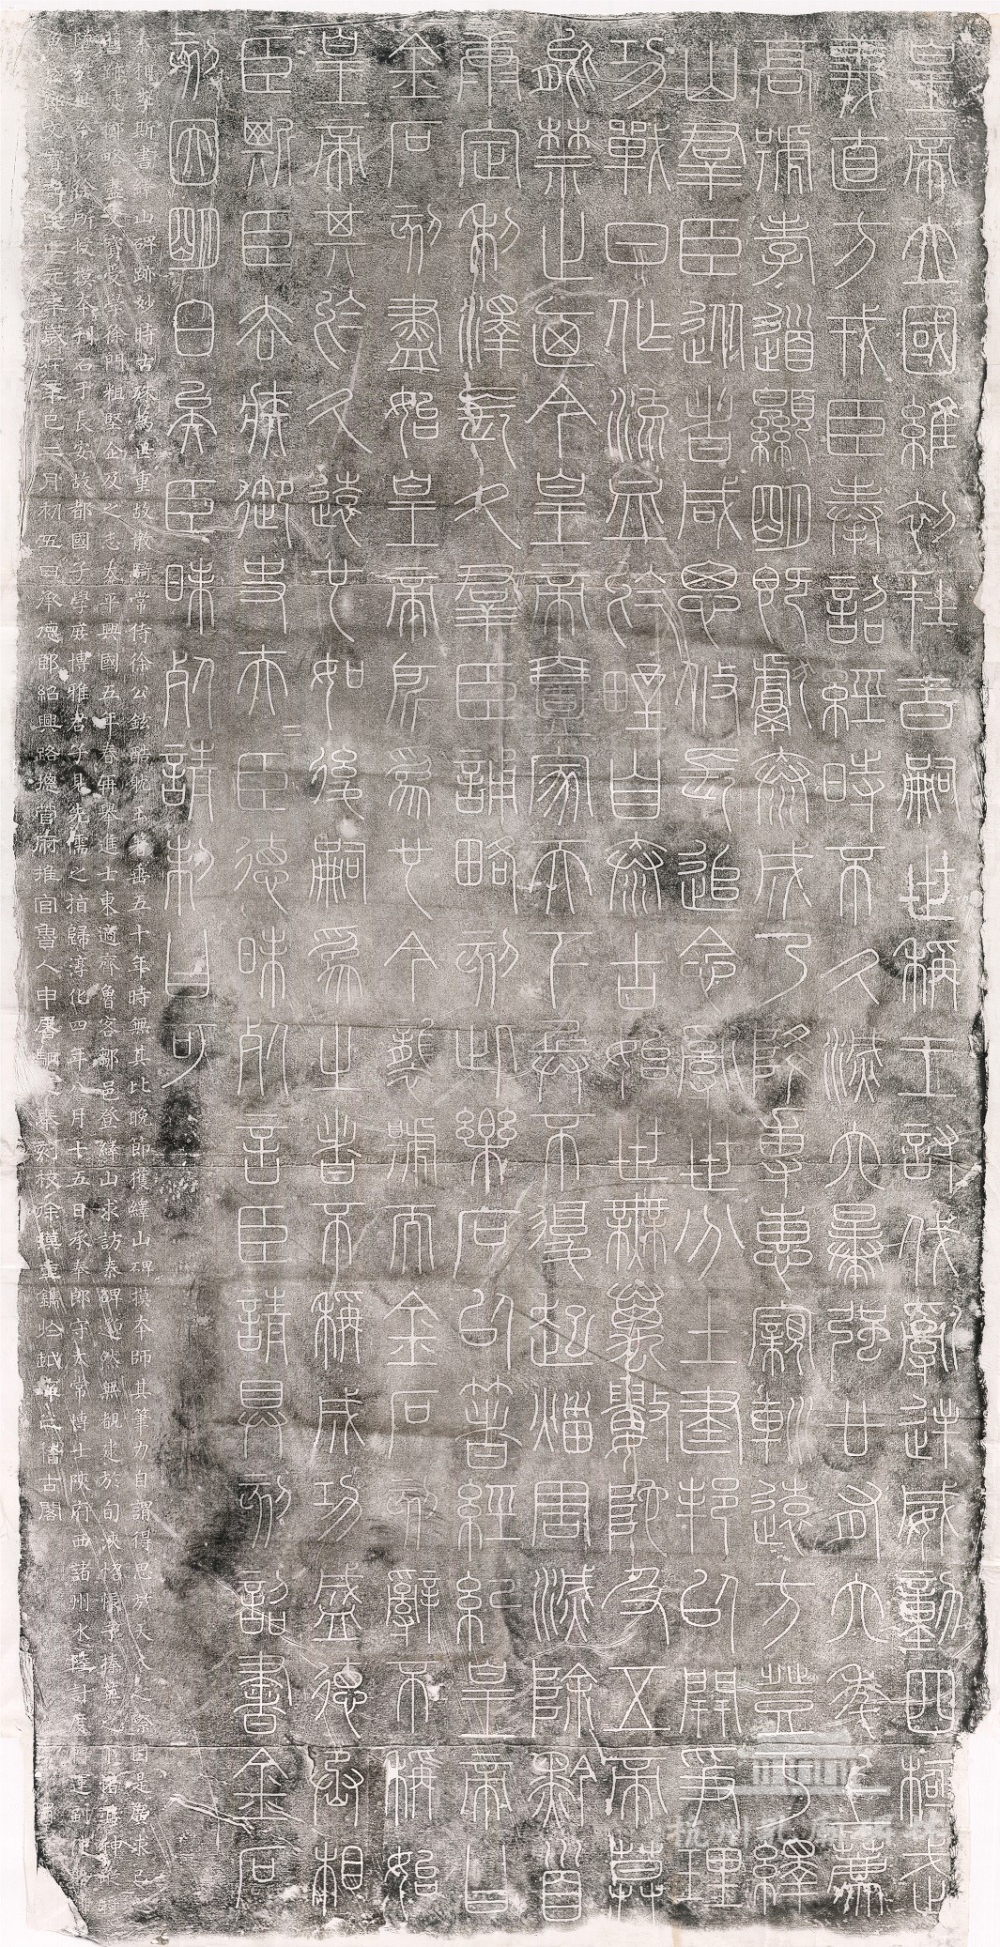 皇帝立國維初在昔嗣世稱王討伐亂逆威動四極武
義直方戎臣奉詔經時不久滅六暴強廿有六年上薦
高號孝道顯明既獻泰成乃降專惠親巡遠方登于繹
山群臣從者咸思攸長追念亂世分土建邦以開爭理
功戰日作流血於野自泰古始世無萬數陀及五帝莫
能禁止迺今皇帝壹家天下兵不復起災害滅除黔首
康定利澤長久群臣誦略刻此樂石以著經紀皇帝曰
金石刻盡始皇帝所為也今襲號而金石刻辭不稱始
皇帝其於久遠也如後嗣為之者不稱成功盛德丞相
臣斯臣去疾御史夫=臣德昧死言臣請具刻詔書金石
刻因明白矣臣昧死請制曰可
秦相李斯書繹山碑跡妙時古殊為世重故散騎常侍徐公鉉酷耽玉箸垂五十年時無其比晚節獲繹山碑摸本師其筆力自謂得思於天人之際因是廣求己
之舊跡焚擲略盡文寶受學徐門粗堅企及之志太平興國五年春再舉進士東適齊魯客鄒邑登繹山求訪秦碑邈然無覩逮於旬浹怊悵于榛蕪之下惜其神蹤將
墜於世今以徐所授摸本刊石于長安故都國子學庶博雅君子見先儒之指歸淳化四年八月十五日承奉郎守太常博士陝府西諸州水陸計度轉運副使賜緋
魚袋鄭文寶記至正元年歲在辛巳二月初五日承德郎紹興路總管府推官魯人申屠駉以秦刻校徐模重鐫於越庠之稽古閣